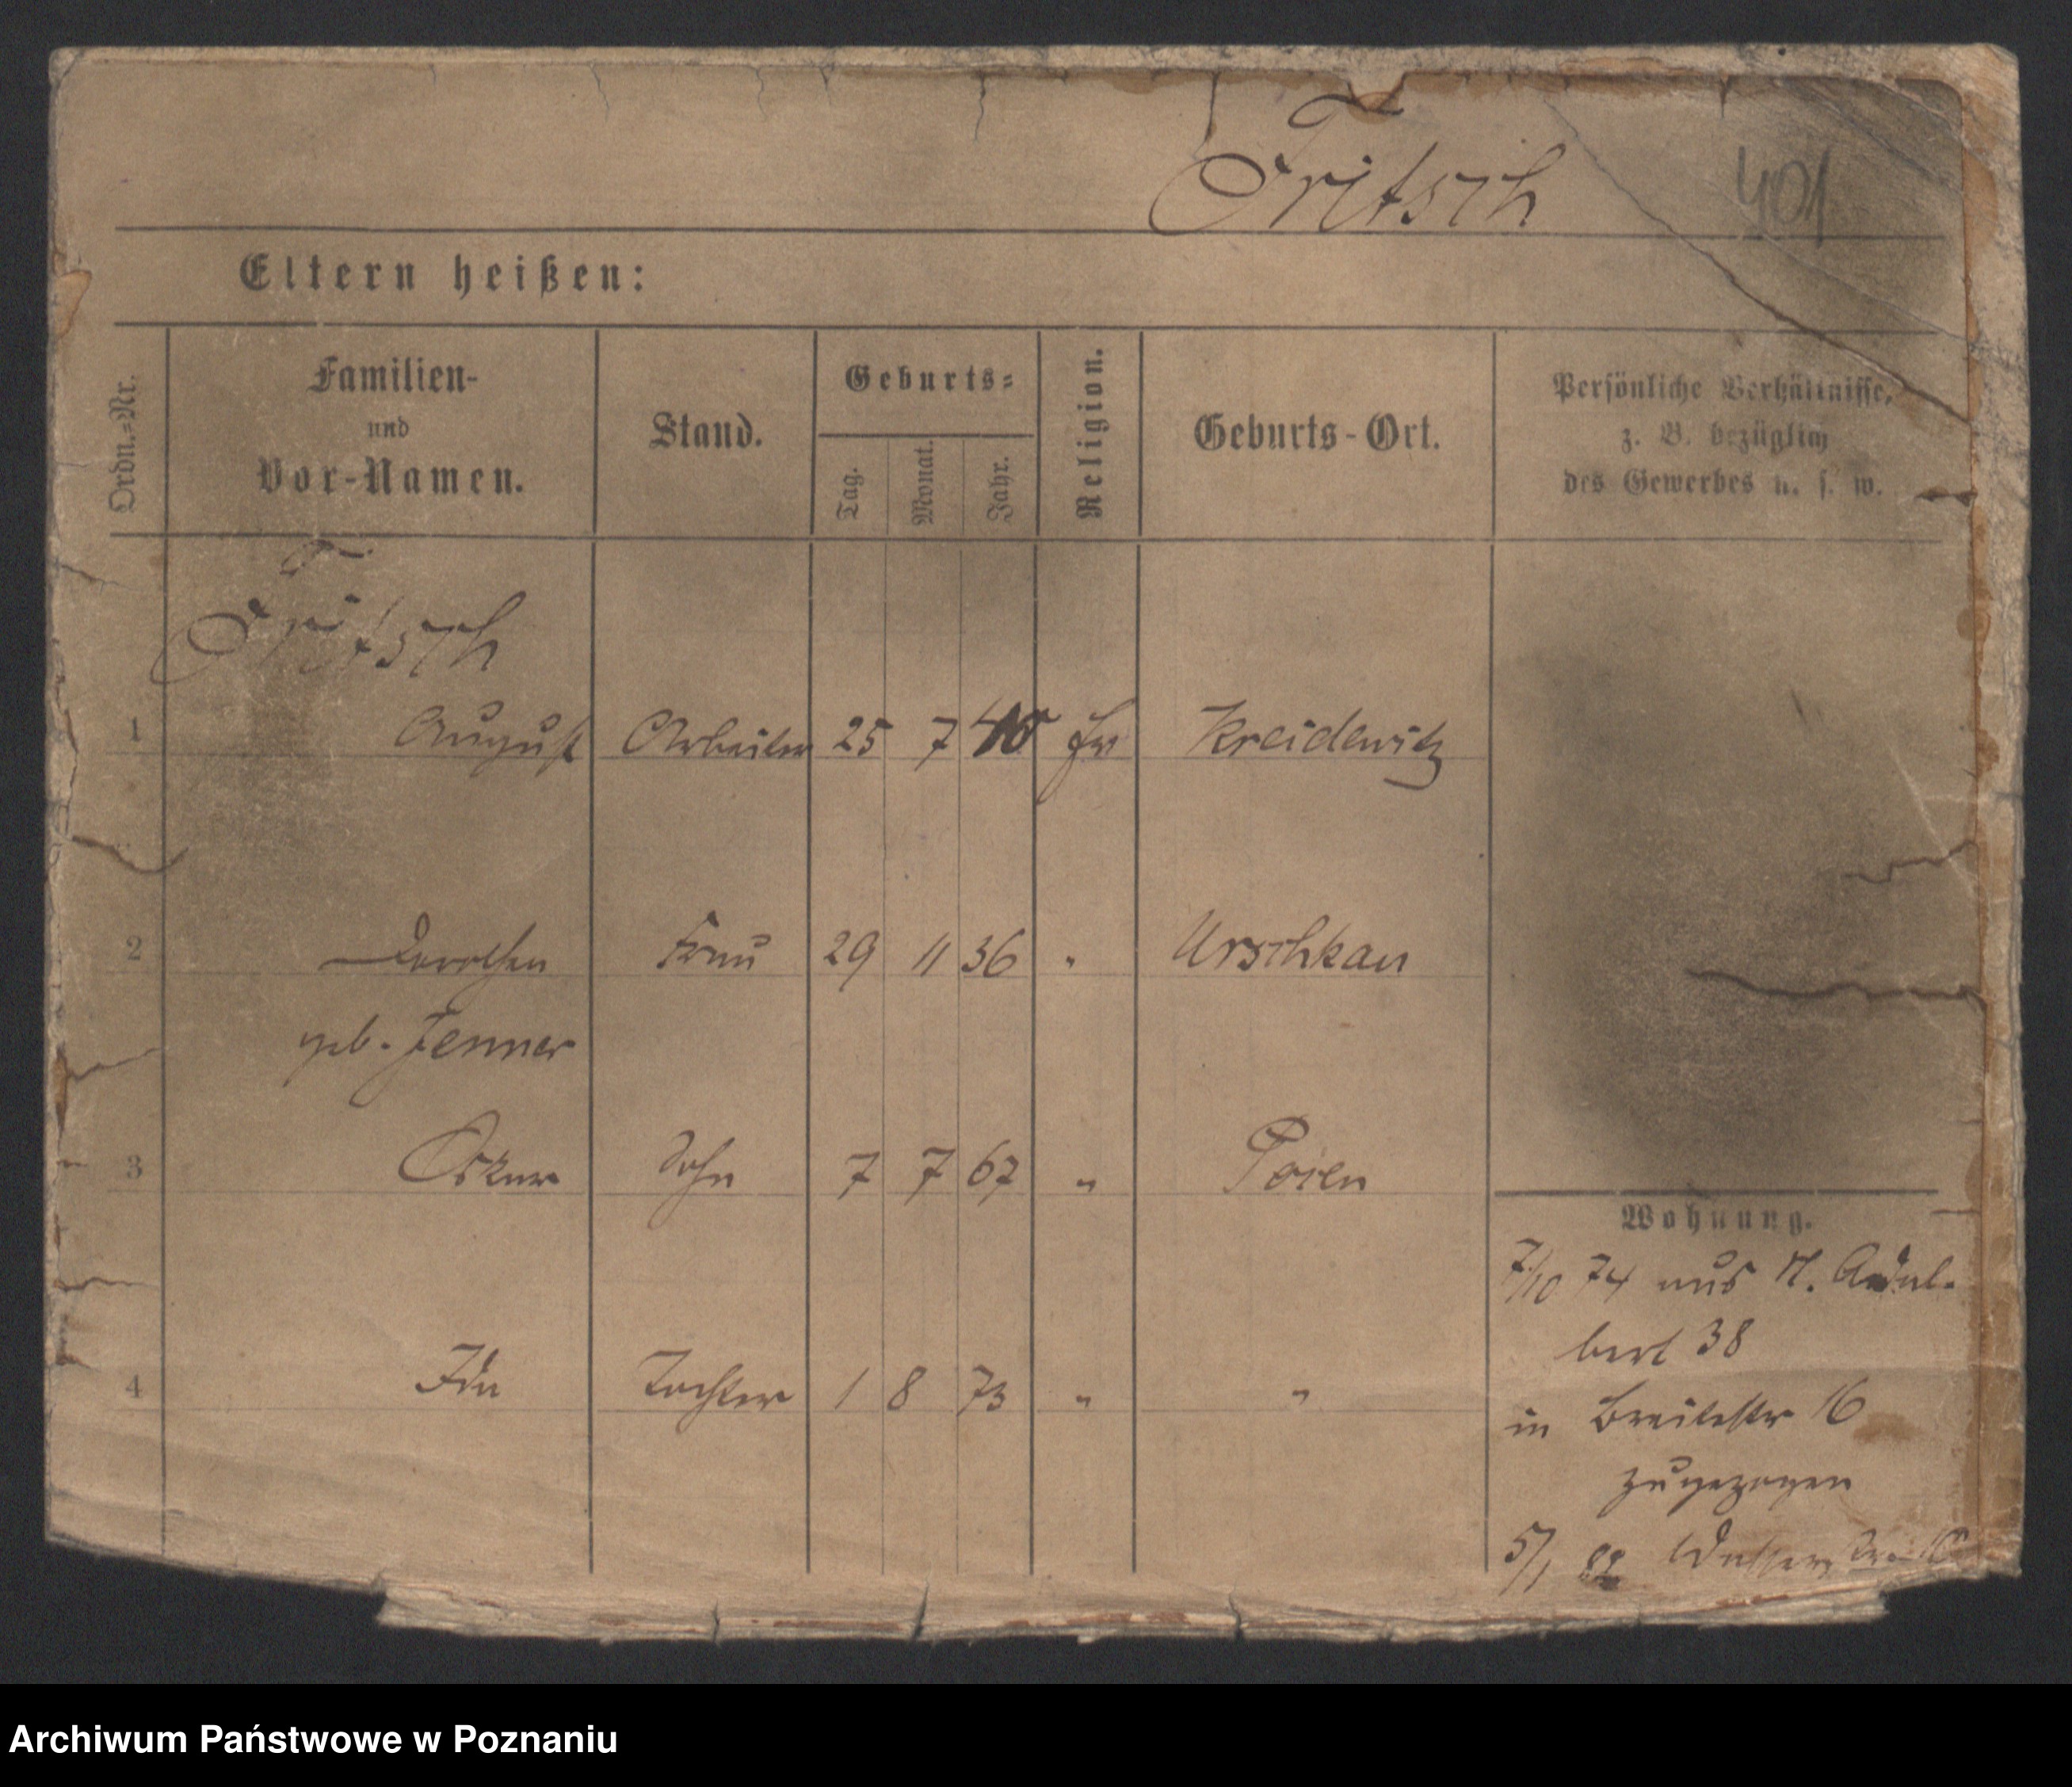 Fritsch 401
Eltern heißen:
Ordn.-Nr. Familien- und Vor-Namen. Stand. Geburts- Tag. Monat. Jahr. Religion. Geburts-Ort. Persönliche Verhältnisse, z. B. bezüglich des Gewerbes u. s. w.
Fritsch
1 August Arbeiter 25 7 Kreidewitz
2 Dorothea Frau 29 11 36 " Urschkau
geb. Jenner
3 Oskar Sohn 7 7 67 " Posen
Wohnung.
7/10 74 aus N. Adal-
bert 38
4 Ida Tochter 1 8 73 " "
in Breitestr 16
zugezogen
5/1 82
Archiwum Państwowe w Poznaniu